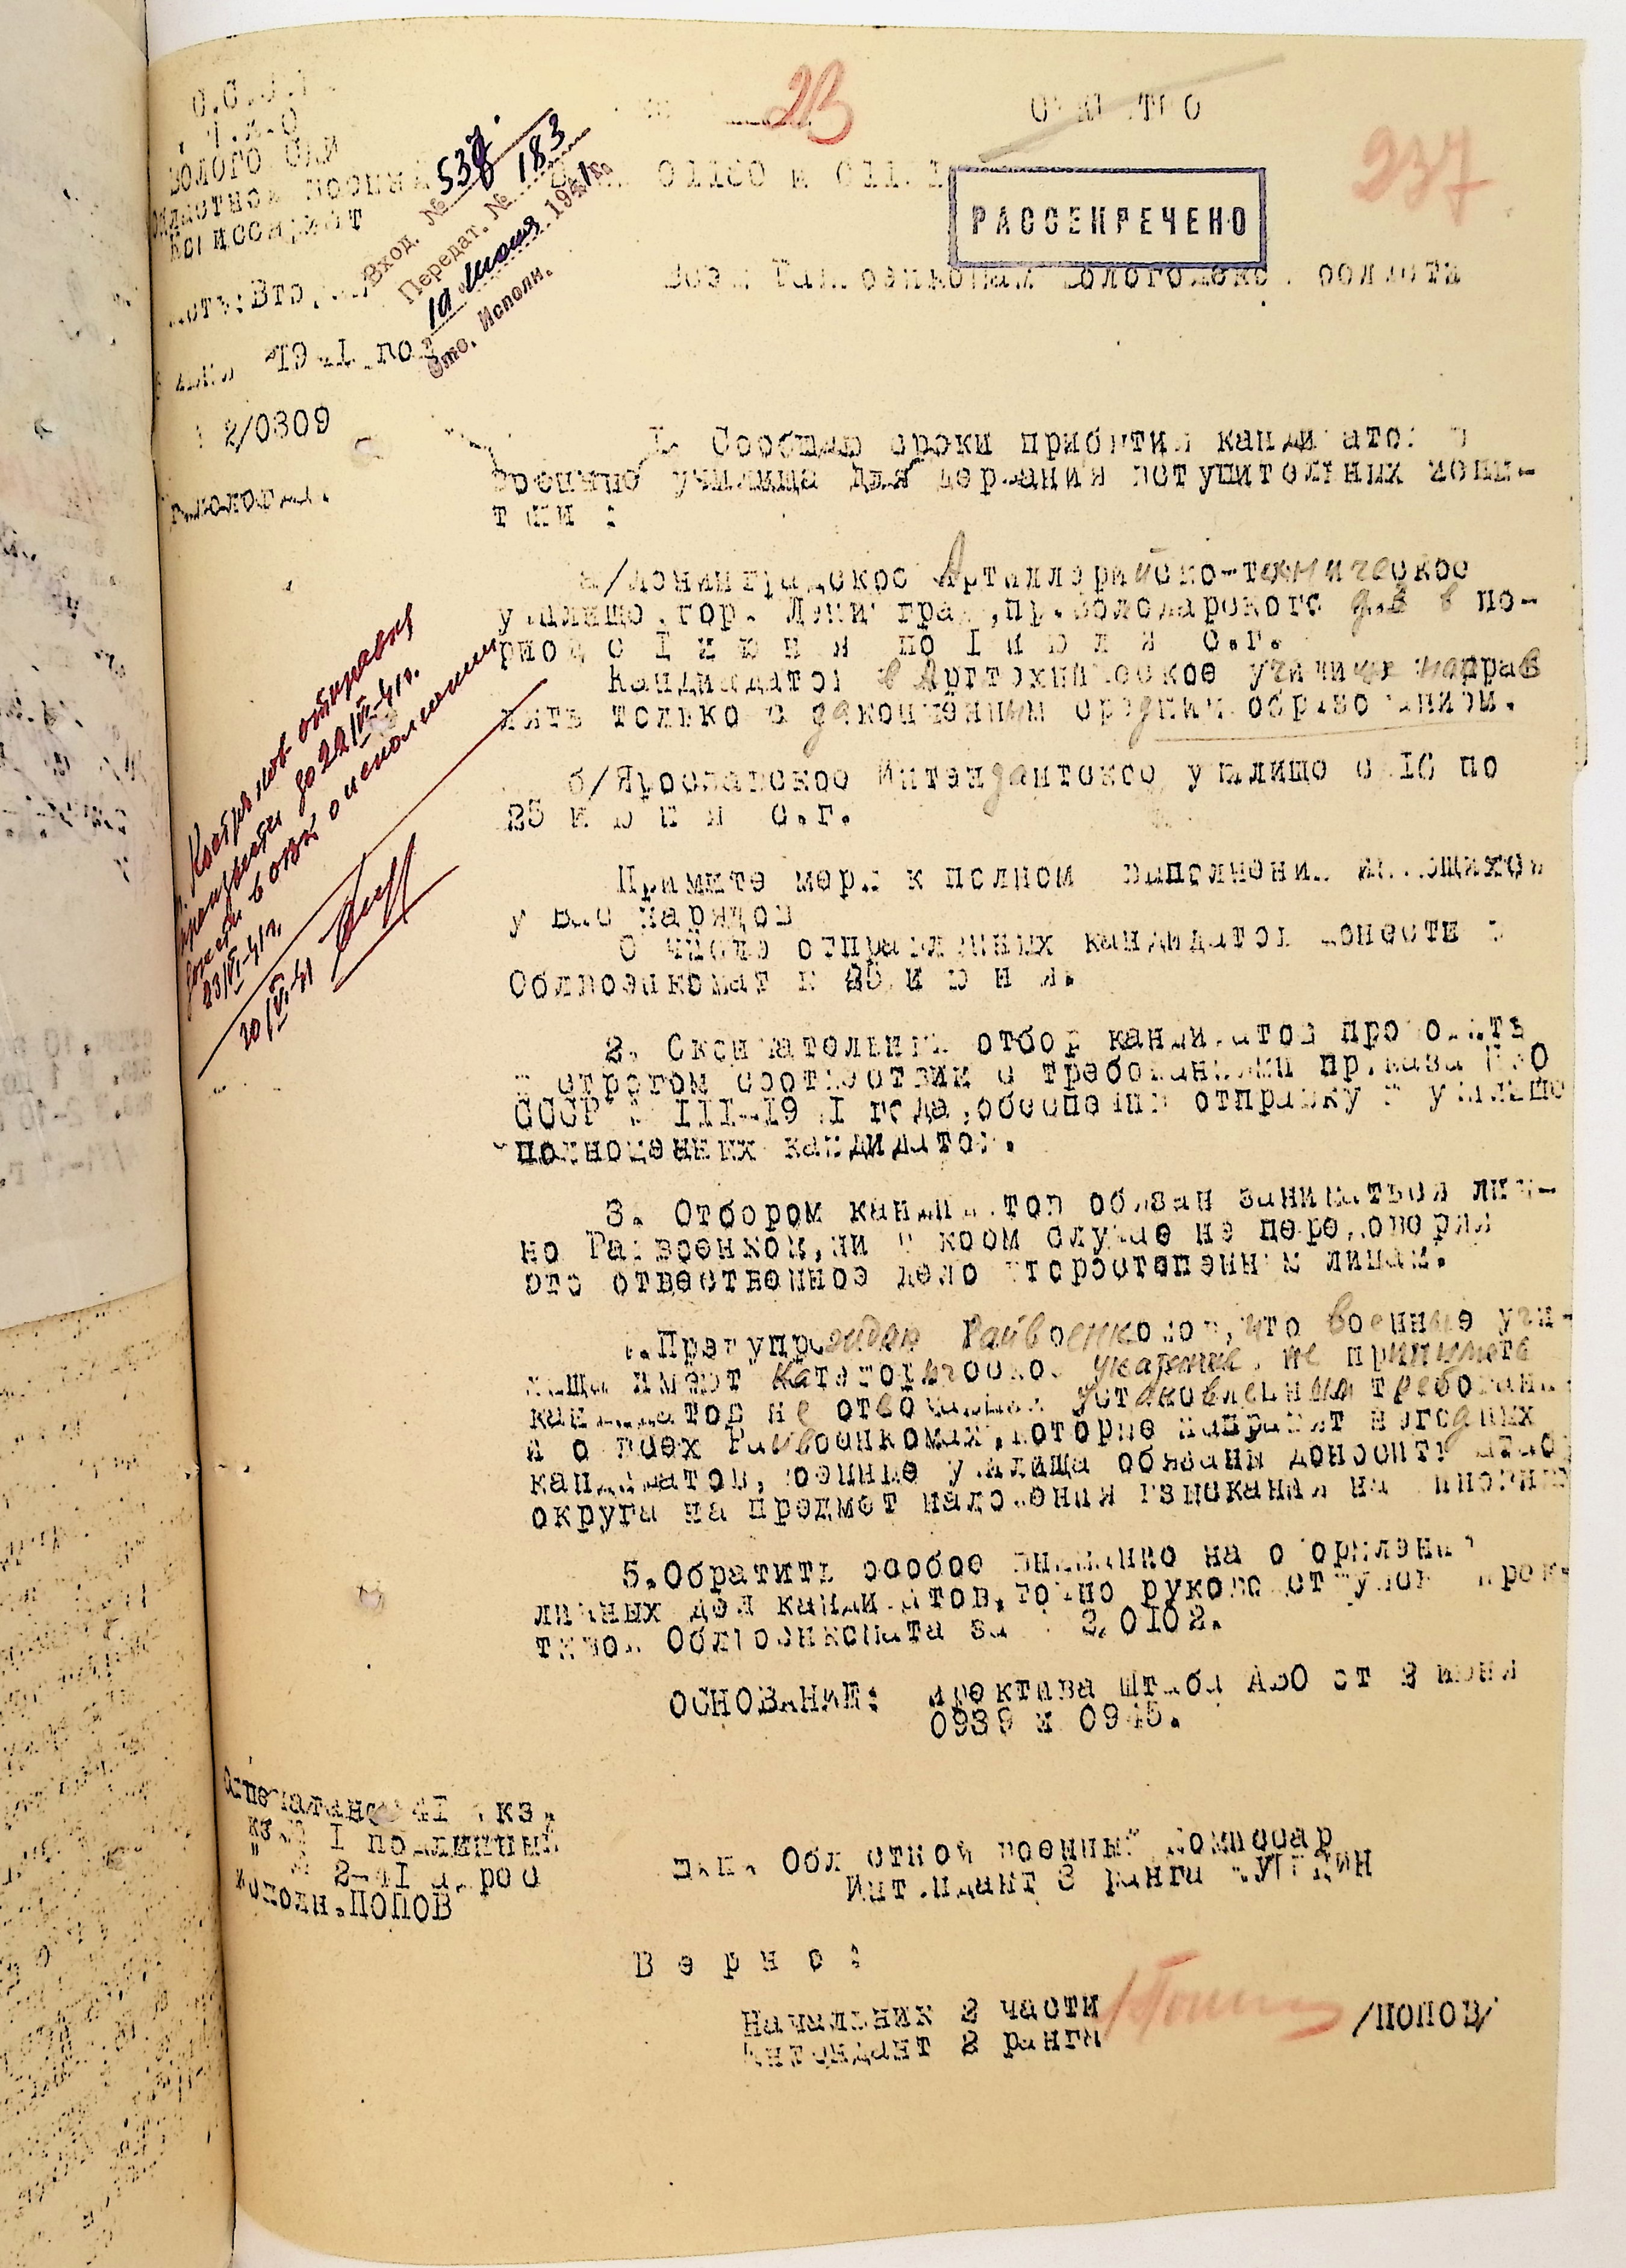 С.С.С.Р.
ВОЛОГОДСКИЙ
Областной Военный
Комиссариат
Часть: Вторая
1941 год
2/0309
г. Вологда.
Вход. № 537.
Передат. № 183
10 июня 1941 г.
Отв. Исполн.
23
СЕКРЕТНО
237
РАССЕКРЕЧЕНО
Всем Райвоенкомам Вологодской области
I. Сообщаю сроки прибытия кандидатов в
военные училища для держания вступительных испы-
таний :
а/Ленинградское Артиллерийско-техническое
училище гор. Ленинград, пр. Володарского д.3 в пе-
риод с I и ю н я по I и ю л я с.г.
Кандидатов в Арттехническое училище направ
лять только с законченным средним образованием.
б/Ярославское Интендантское училище с 16 по
25 и ю н я с.г.
Примите меры к полному выполнению имеющихся
у Вас нарядов
О числе отправленных кандидатов донести в
Облвоенкомат к 25 и ю н я.
2. Окончательный отбор кандидатов проводить
в строгом соответствии с требованиями приказа НКО
СССР № III-1941 года, обеспечив отправку в училище
полноценных кандидатов.
3. Отбором кандидатов обязан заниматься лич-
но Райвоенком, ни в коем случае не передоверяя
это ответственное дело второстепенным лицам.
4.Предупреждаю Райвоенкомов, что военные учи-
лища имеют категорическое указание, не принимать
кандидатов не отвечающих установленным требовани-
я о всех Райвоенкомах, которые направят негодных
кандидатов, военные училища обязаны доносить штабу
округа на предмет наложения взыскания на виновных
5.Обратить особое внимание на оформление
личных дел кандидатов, точно руководствуясь дирек-
тивой Облвоенкомата за № 2/0102.
ОСНОВАНИЕ: Директива Штаба АВО от 3 июня
0939 и 0945.
Отпечатано 41 экз.
экз. № I подлинный
" № 2-41 адрес
Исполн. ПОПОВ
п.п. Областной военный комиссар
Интендант 3 ранга
В е р н о :
Начальник 2 части
Интендант 2 ранга
/ПОПОВ/
отправку
произвести до 22/VI-41г.
донести в ОВК о исполнении
23/VI-41г.
10/VI-41